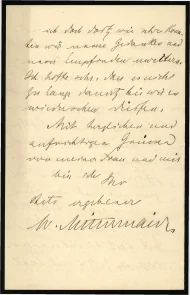 ich doch dort, wie ihre
wir unsere Gedanken und
unser Empfinden
Ich hoffe sehr, dass es nicht
zu lange dauert, bis wir es
wiederholen dürfen.
Mit herzlichen und
aufrichtigen Grüssen
von meiner Frau und mir
bin ich Ihr
stets ergebener
W. Mittermaier